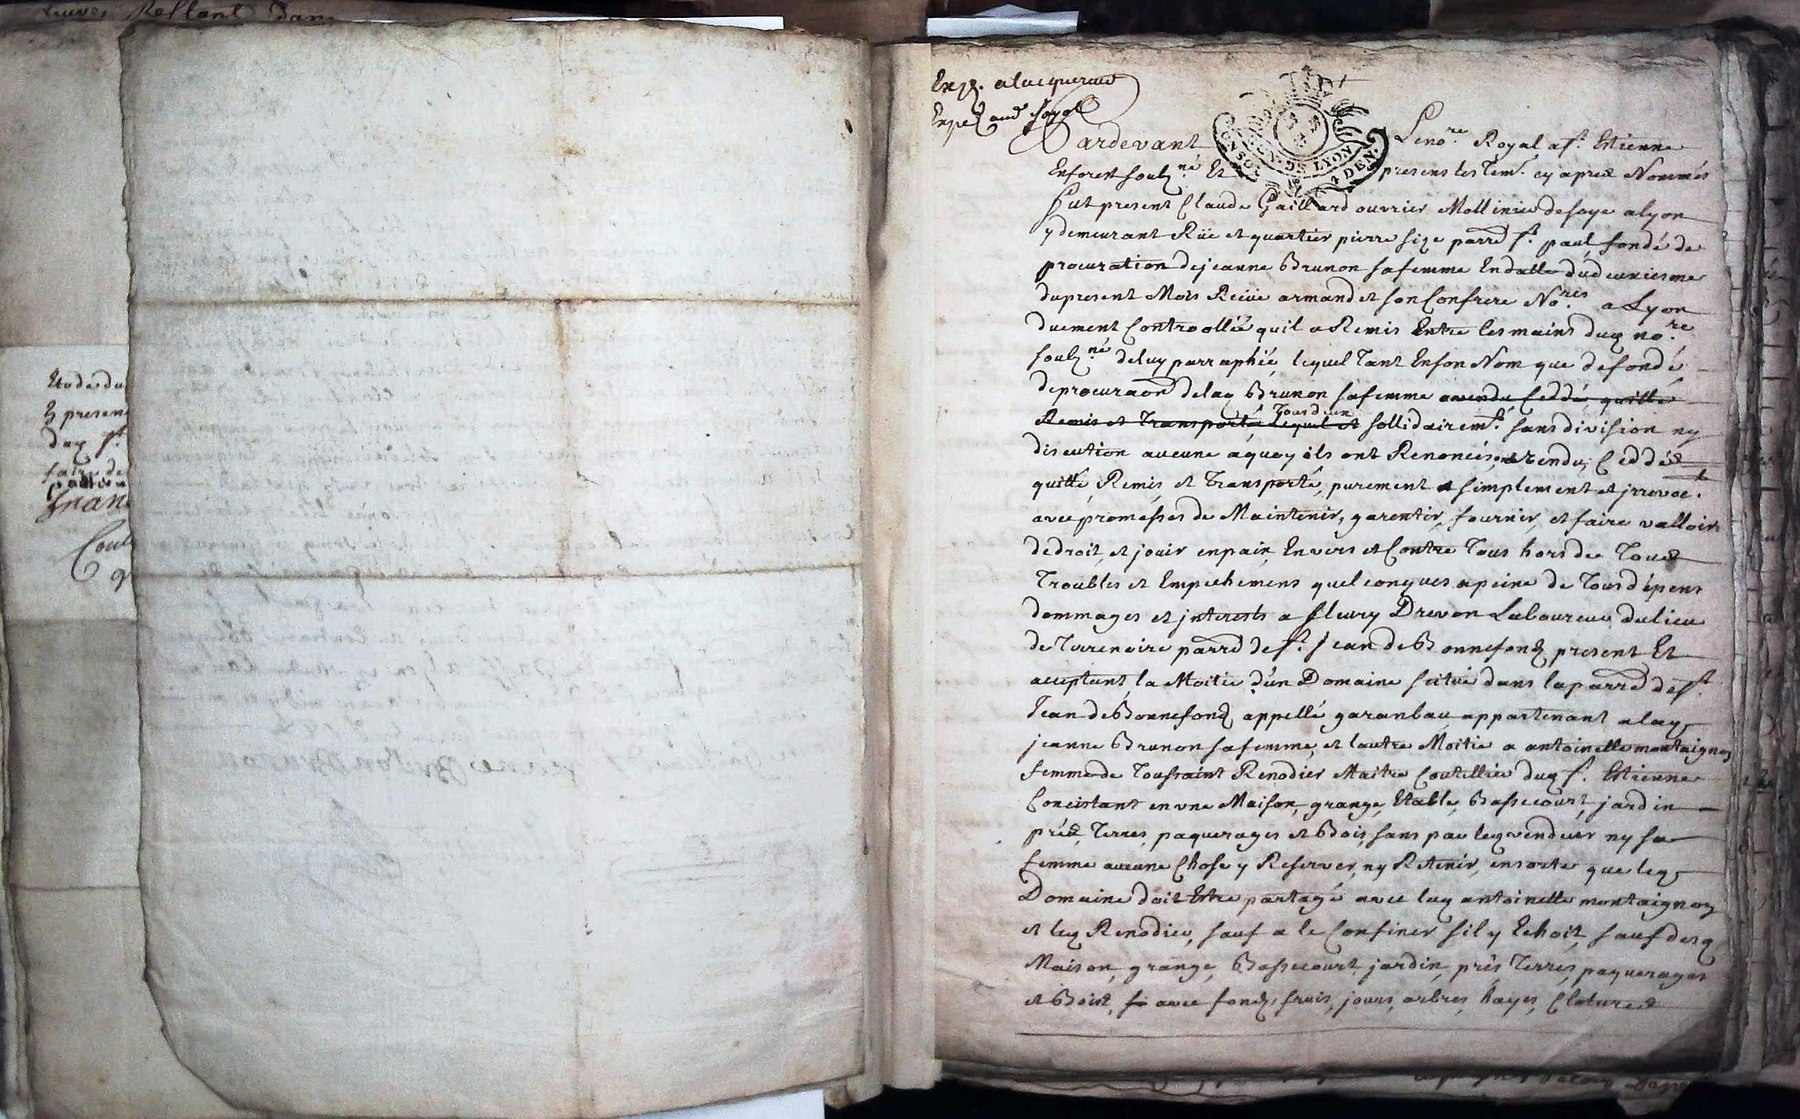 Rellant dans
Expé. a lacquereur
Expé aud. Sayol
Pardevant Le no.re Royal a S.t Estienne
GEN. DE LYON
DEN.
En forest soub.né Et presens les tem.s cy apres Nommés
Fut present Claude Gaillard ouvrier Mollinier de soye a lyon
y demeurant Rüe et quartier pierre size parr.e S.t paul fondé de
procuration de jeanne Brunon sa femme En datte du deuxiesme
du present Mois Reçüe armand et son Confrere No.res a Lyon
duement Controollée quil a Remis Entre les mains dud no.re
soub.né de luy parraphée, lequel Tant En son Nom que de fondé
de procuraon de lad Brunon sa femme a vendu Ceddé quitté
Remis et Transporté Lequel et Tous deux sollidairem.t sans division ny
discution aucune a quoy ils ont Renoncés, vendu, Ceddé
quitté Remis et Transporté, purement et simplement et jrrevoc.t
avec promesses de Maintenir, garentir, fournir, et faire valloir
de droit, et jouir en paix, Envers et Contre Tous hors de Tous
Troubles et Empechemens quelconques a peine de Tous dépens
dommages et jnterests a fleury Drevon Laboureur du lieu
de Terrenoire parr.e de S.t Jean de Bonnefond present Et
aceptant, la Moitie d'un Domaine scitué dans la parr.e de S.t
Jean de Bonnefond appellé garanbau appartenant a lad
jeanne Brunon sa femme, et lautre Moitie a antoinette montaignon
femme de Toussaint Renodier Maitre Coutellier dud S.t Estienne
Concistant en une Maison, grange, Etable, Bassecourt, jardin
prés, Terres, paquerages et Bois, sans par led vendeur ny sa
femme aucune Chose y Reserver, ny Retenir, en sorte que led
Domaine doit Estre partagé avec lad antoinette montaignon
et led Renodier, sauf a le Confiner sil y Echoit, sauf desd
Maison, grange, Bassecourt, jardin, prés, Terres, paquerages
et Bois, avec fonds, fruis, jours, arbres, hayes, Clotures